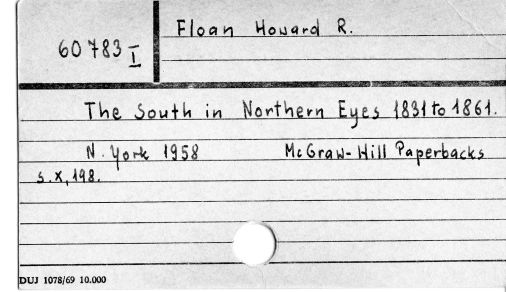 60783 I
Floan Howard R.
The South in Northern Eyes 1831 to 1861.
N. York 1958 McGraw-Hill Paperbacks
s.X,198.
DUJ 1078/69 10.000